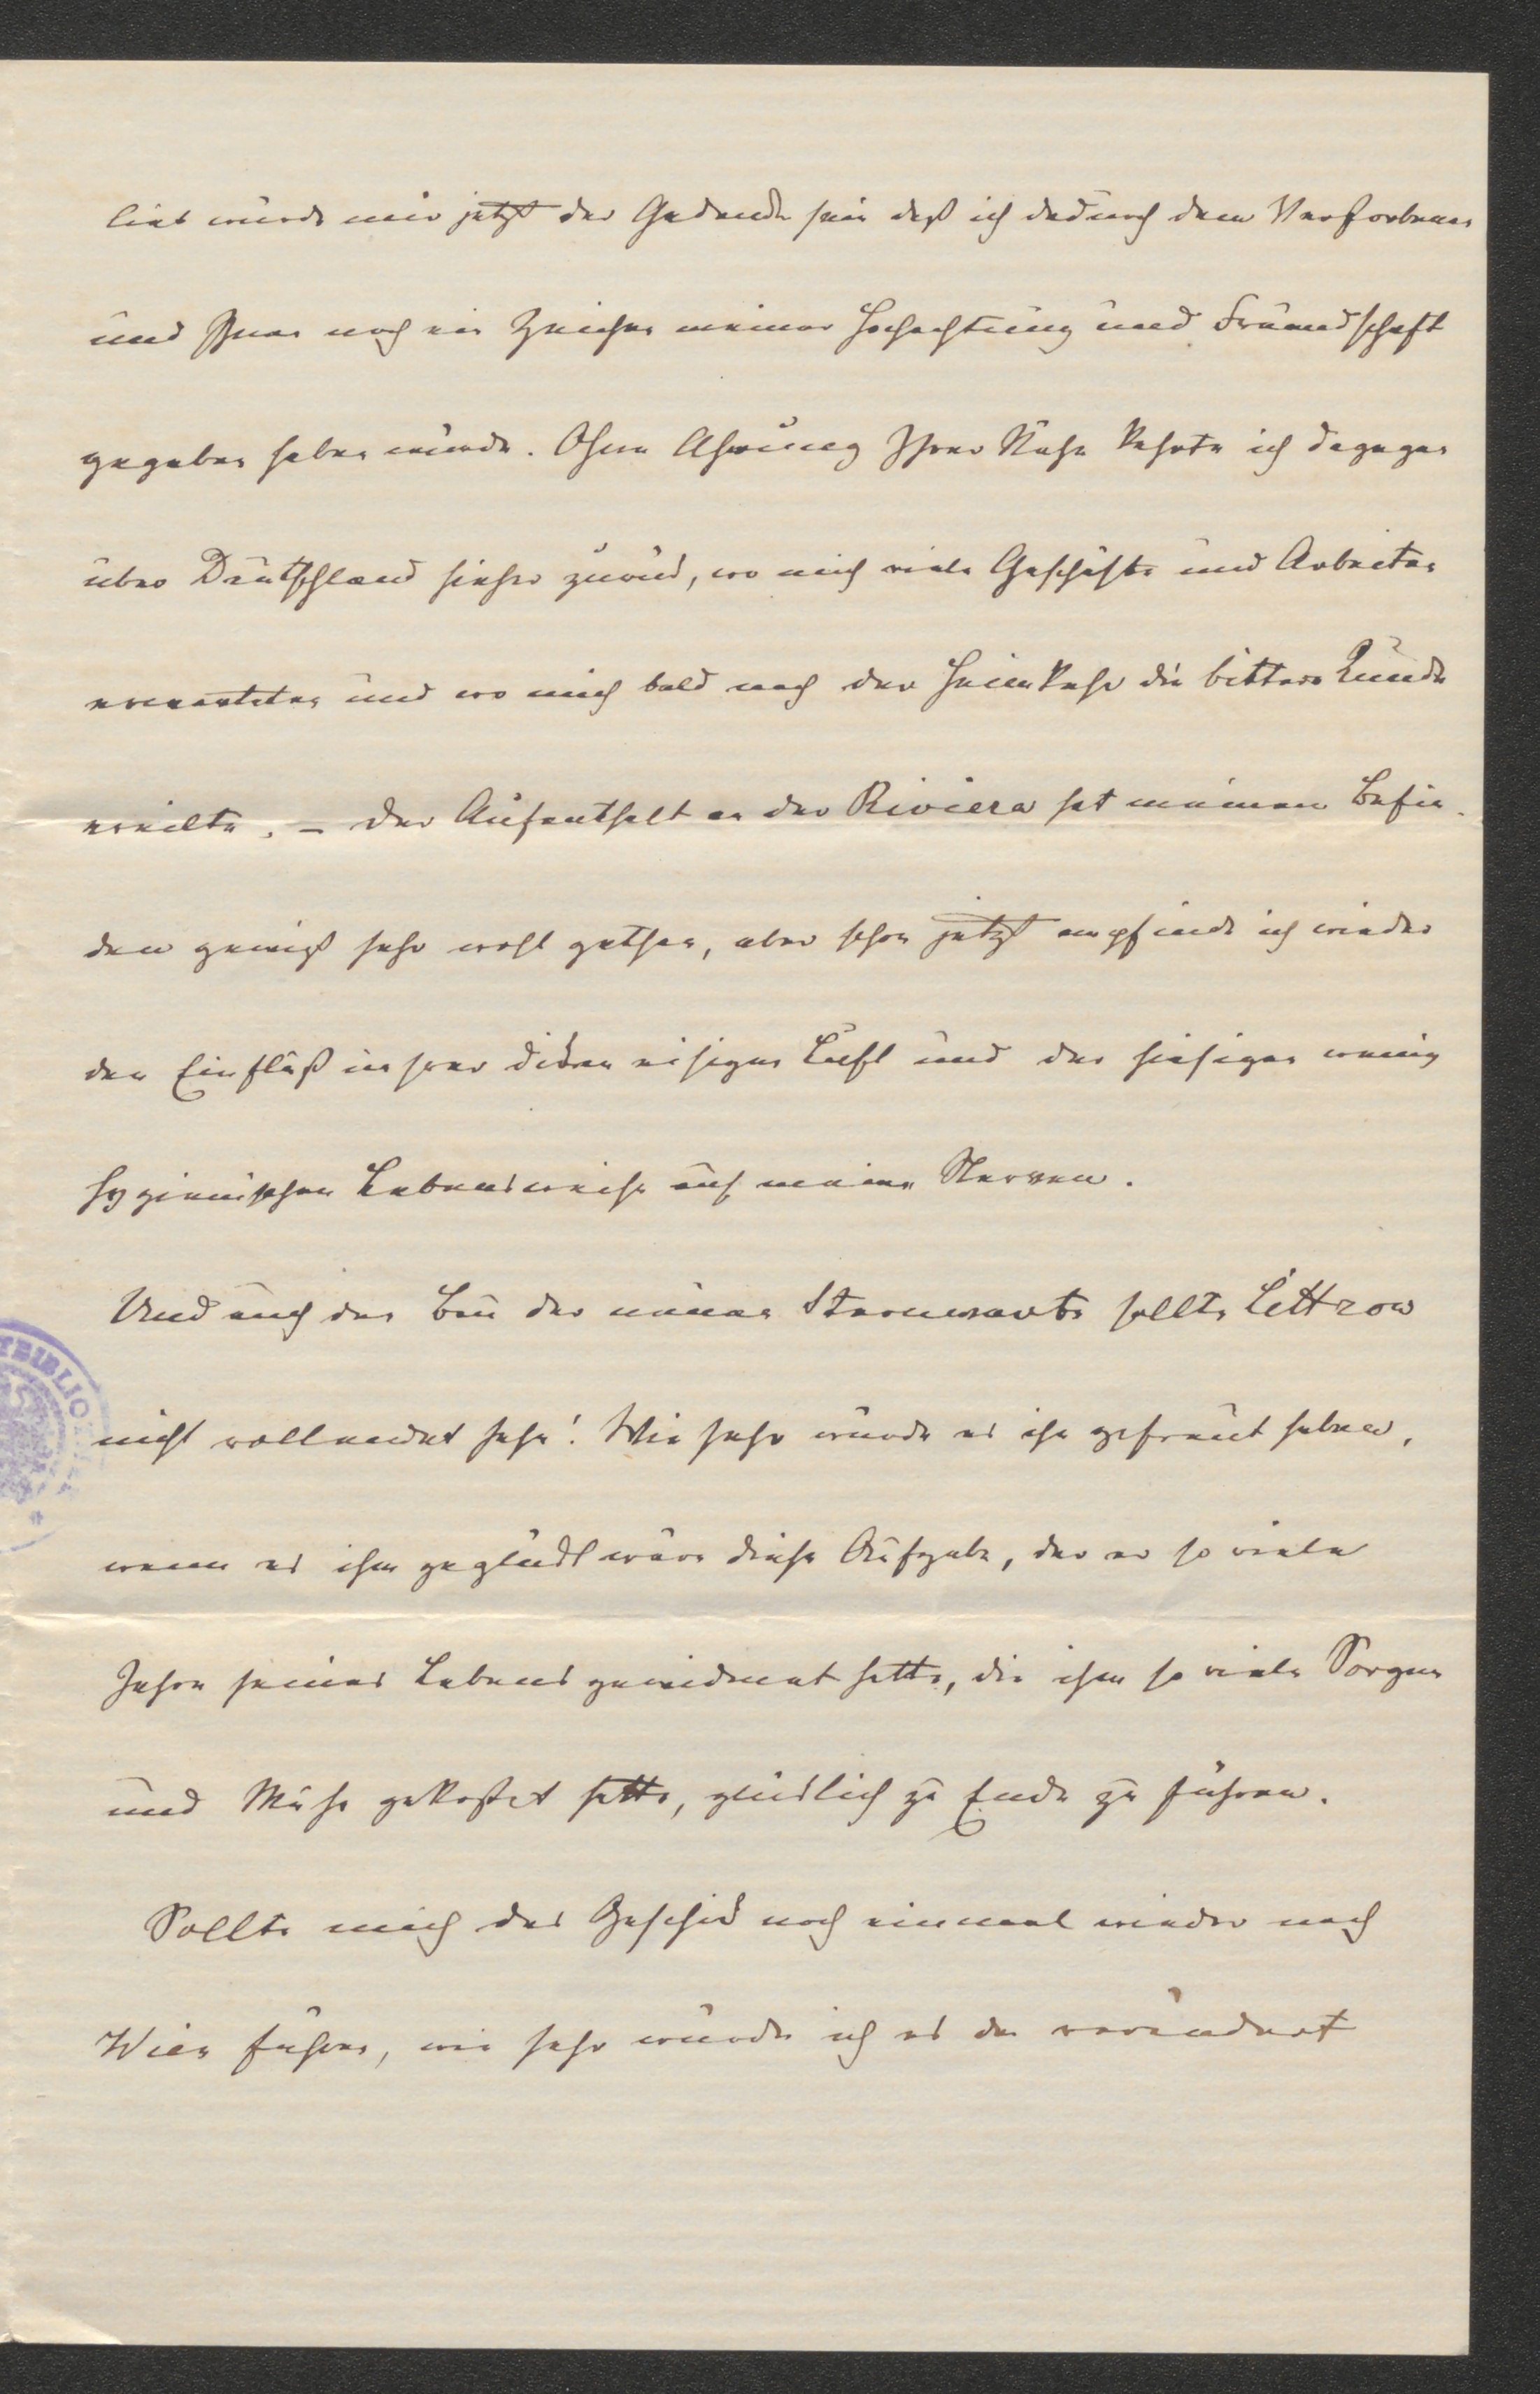 lieb würde mir jetzt der Gedanke sein daß ich dadurch dem Verstorbenen
und Ihnen noch ein Zeichen meiner Hochachtung und Freundschaft
gegeben haben würde. Ohne Ahnung Ihrer Nähe kehrte ich dagegen
über Deutschland hieher zurück, wo mich viele Geschäfte und Arbeiten
erwarteten und wo mich bald nach der Heimkehr die bittere Kunde
ereilte. – Der Aufenthalt an der Riviera hat meinem Befin-
den gewiß sehr wohl gethan, aber schon jetzt empfinde ich wieder
den Einfluß unserer dicken eisigen Luft und der hiesigen wenig
hygienischen Lebensweise auf meine Nerven.
Und auch den Bau der neuen Sternwarte sollte Littrow
nicht vollendet sehn! Wie sehr würde es ihn gefreut haben,
wenn es ihm geglückt wäre diese Aufgabe, der er so viele
Jahre seines Lebens gewidmet hatte, die ihm so viele Sorgen
und Mühe gekostet hatte, glücklich zu Ende zu führen.
Sollte mich das Geschick noch einmal wieder nach
Wien führen, wie sehr würde ich es da verändert
TBIBLIO